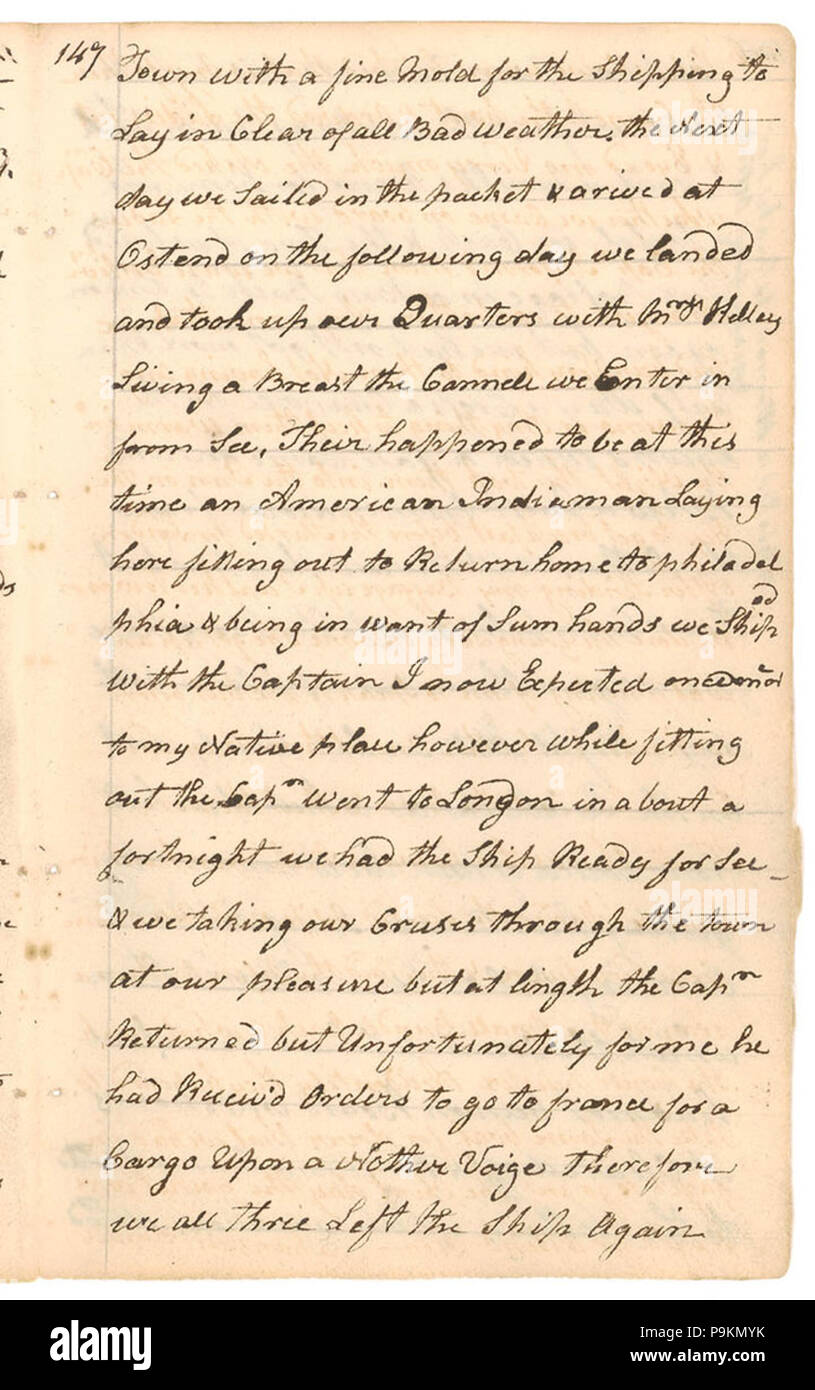 147
Town with a fine Mold for the Shipping to
Lay in Clear of all Bad weather. the Next
day we Sailed in the packet & arived at
Ostend on the following day we landed
and took up our Quarters with Mrs Kelley
Living a Breast the Cannele we Enter in
from See, Their happened to be at this
time an American Indiaman Laying
here fitting out to Return home to philadel
phia & being in want of Sum hands we Shiped
with the Captain I now Expected once more
to my Native place however while fitting
out the Capn Went to London in about a
fortnight we had the Ship Ready for See
& we taking our Cruses through the town
at our pleasure but at length the Capn
Returned but Unfortunately for me he
had Receiv'd Orders to go to france for a
Cargo Upon a Nother Voige therefore
we all three Left the Ship Again
alamy
Image ID: P9KMYK
www.alamy.com